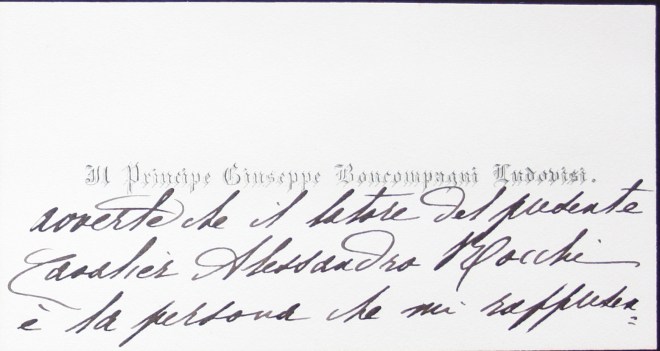 Il Principe Giuseppe Boncompagni Ludovisi.
avverte che il latore del presente
Cavalier Alessandro Rocchi
è la persona che mi rappresen=